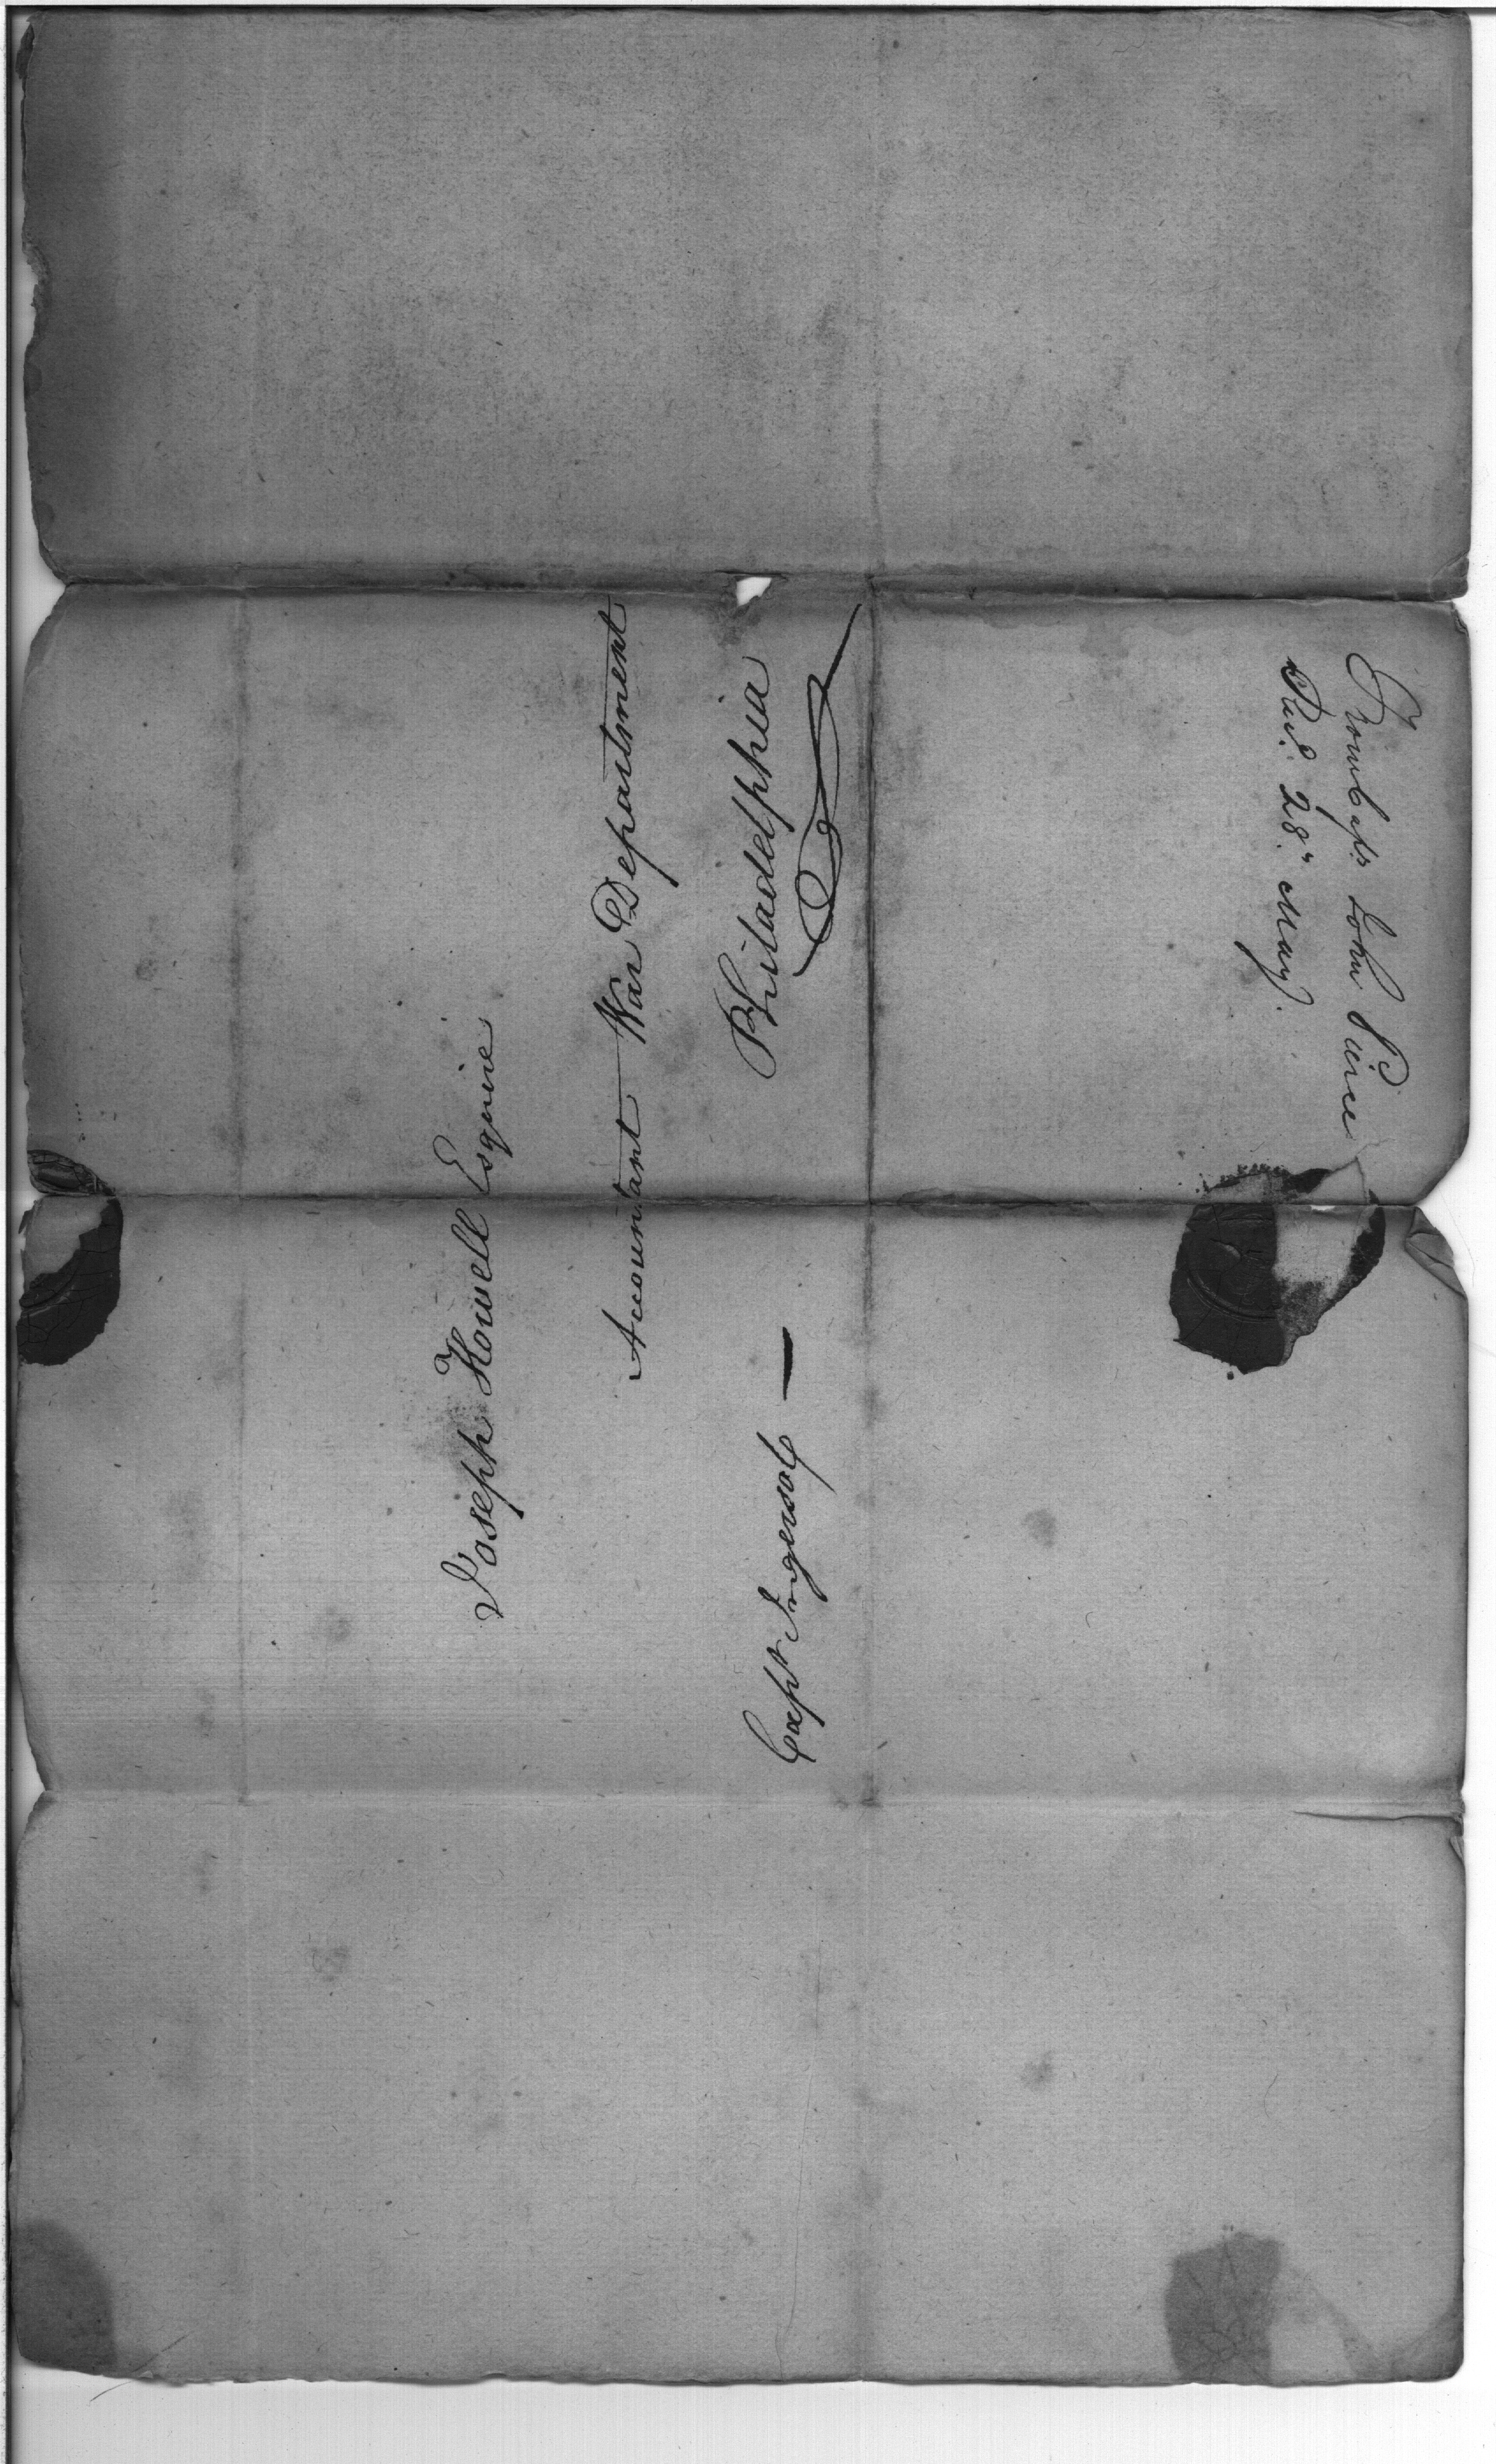 Joseph Howell Esquire
Accountant War Department
Philadelphia
Capt Ingersol
From Capt. John Peirce
Recd. 28th May.